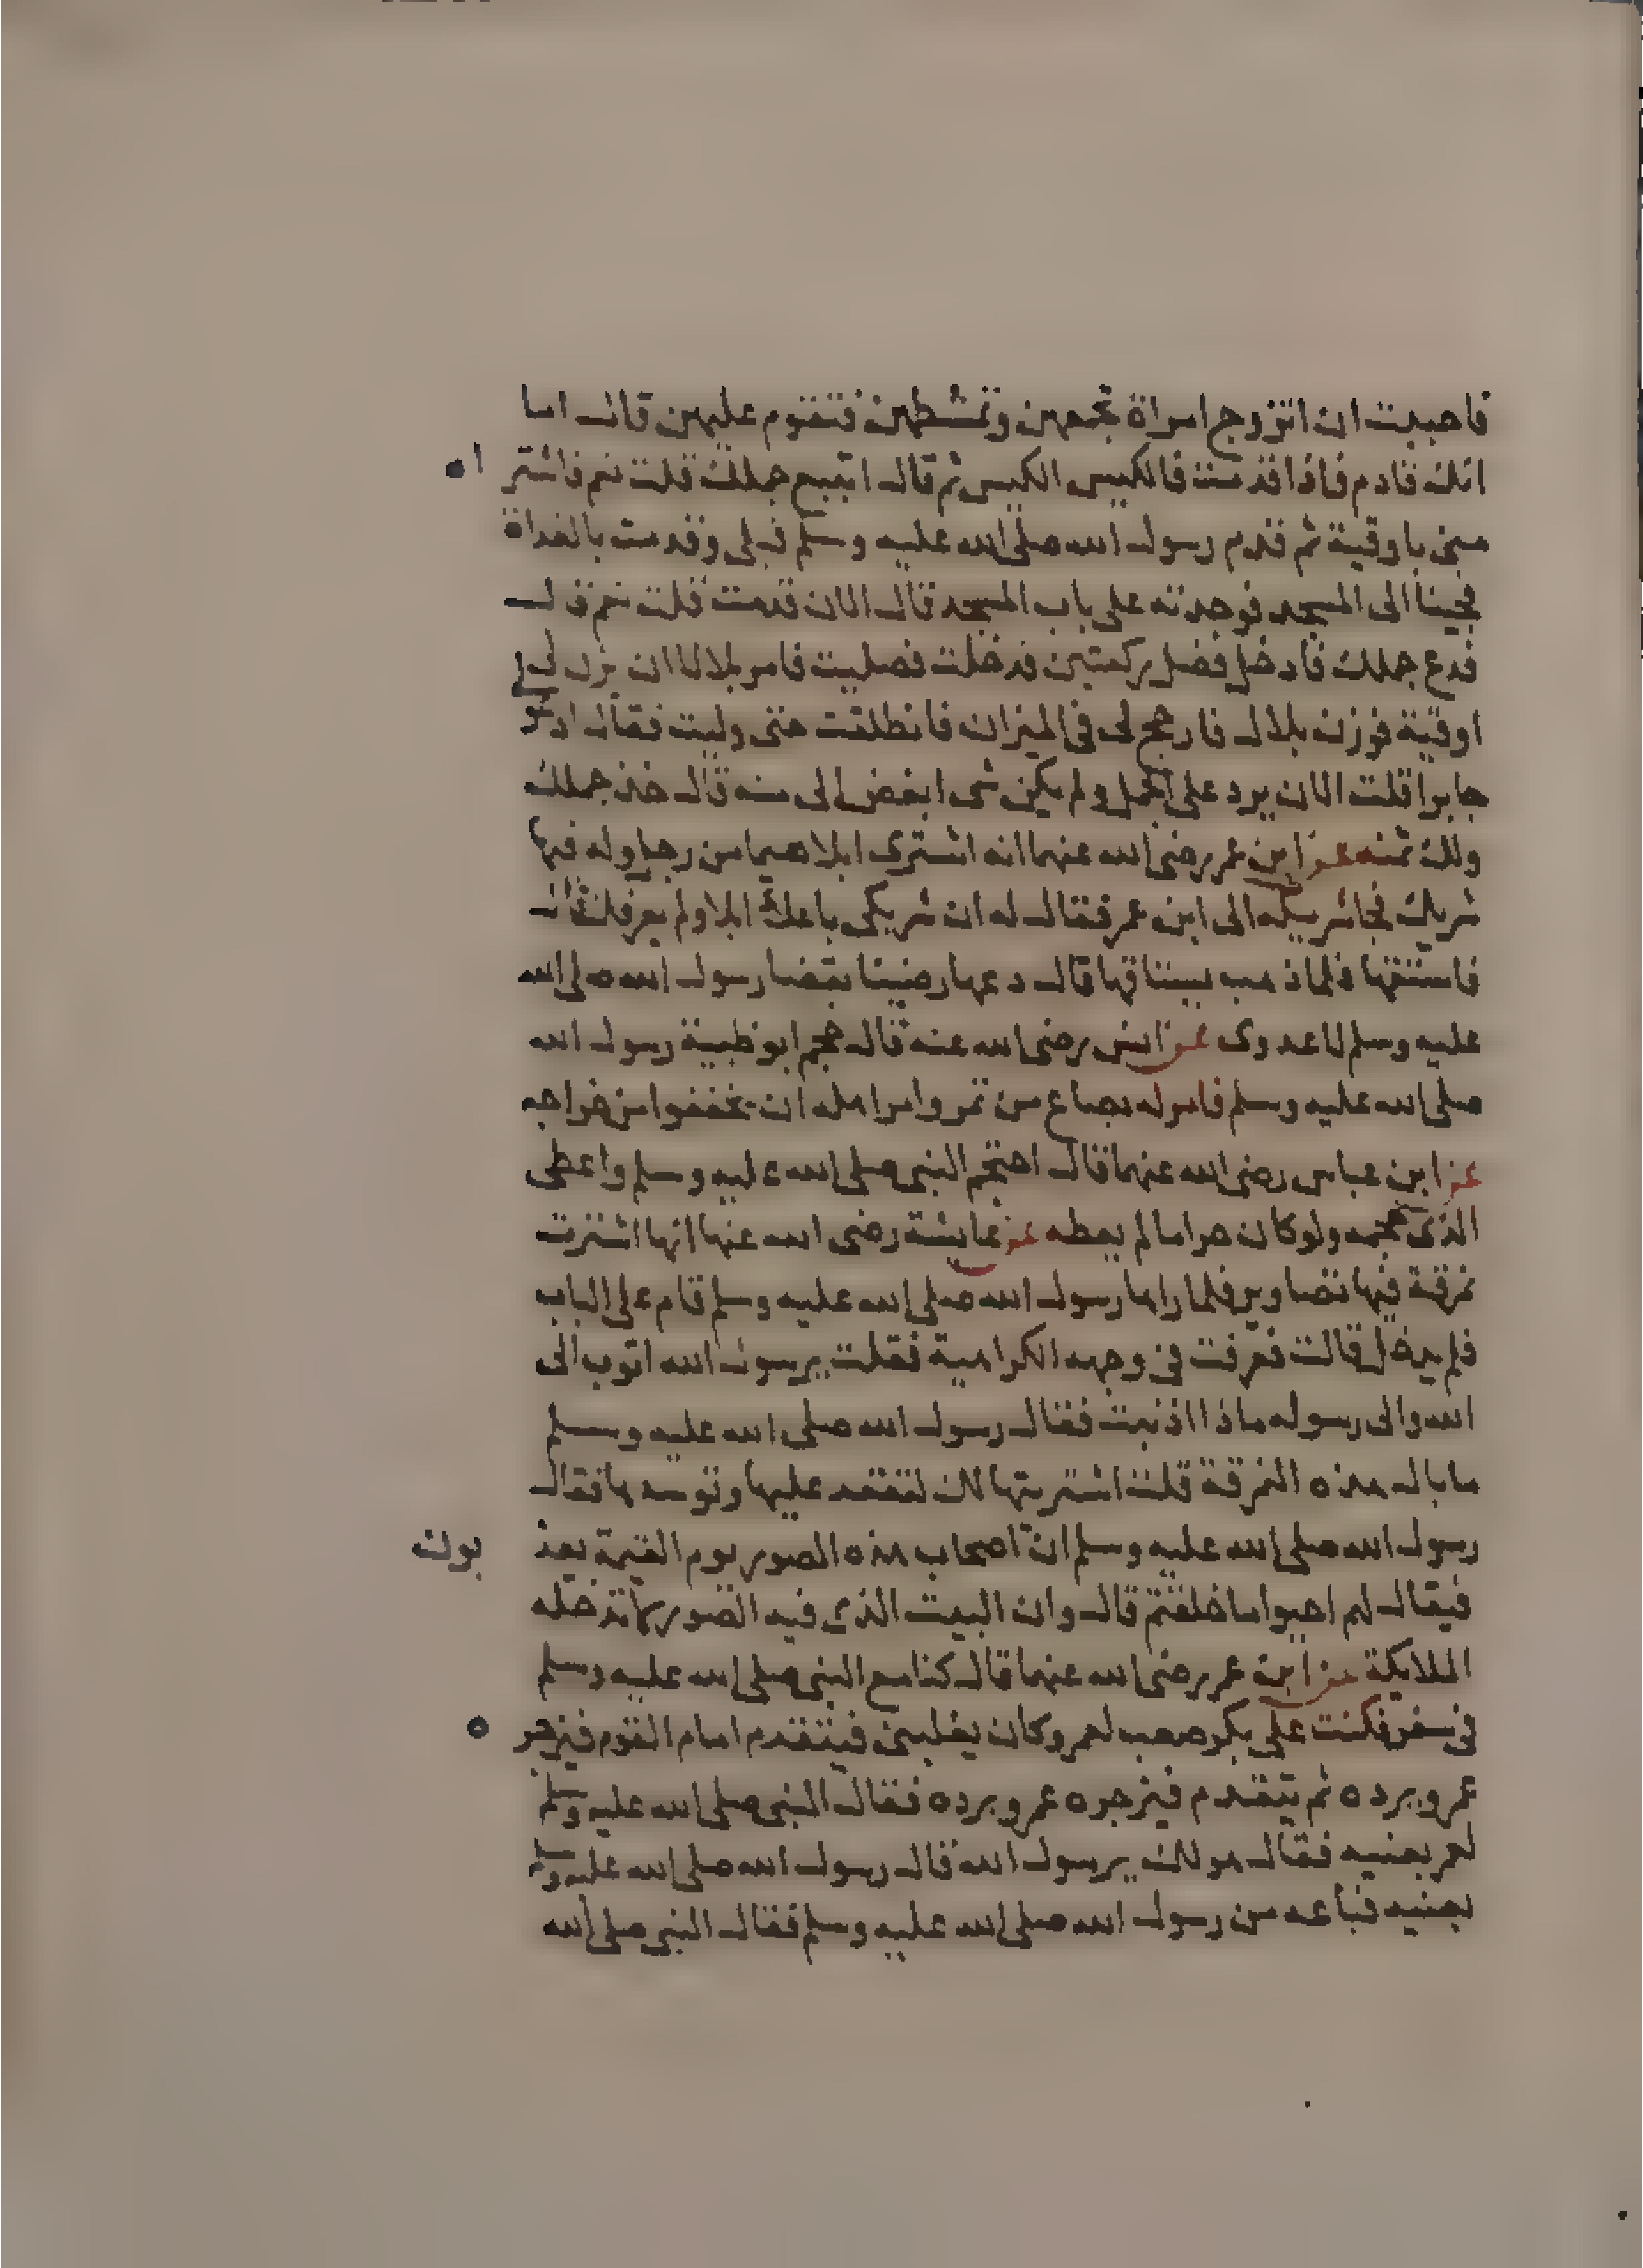 فاحببت ان اتزوج امراة تجمعهن وتمشطهن فتقوم عليهن قال اما
انك قادم فاذا قدمت فالكيس الكيس ثم قال اتبيع جملك قلت نعم فاشتراه
منى باوقية ثم قدم رسول الله صلى الله عليه وسلم قبلى وقدمت بالغداة
فجينا الى المسجد فوجدته على باب المسجد قال الان قدمت قلت نعم قال
فدع جملك فادخل فصل ركعتين فدخلت فصليت فامر بلالا ان يزن لى
اوقية فوزن بلال فارجح لى فى الميزان فانطلقت حتى وليت فقال ادع
جابرا قلت الان يرد على الجمل ولم يكن شى ابغض الى منه قال خذ جملك
ولك ثمنه عن ابن عمر رضى الله عنهما انه اشترى ابلا هيما من رجل وله فيها
شريك فجا شريكه الى ابن عمر فقال له ان شريكى باعك ابلا ولم يعرفك قال
فاستقها فلما ذهب يستاقها قال دعها رضينا بقضا رسول الله صلى الله
عليه وسلم لاعدوى عن انس رضى الله عنه قال حجم ابو طيبة رسول الله
صلى الله عليه وسلم فامر له بصاع من تمر وامر اهله ان يخففوا من خراجه
عن ابن عباس رضى الله عنهما قال احتجم النبى صلى الله عليه وسلم واعطى
الذى حجمه ولو كان حراما لم يعطه عن عايشة رضى الله عنها انها اشترت
نمرقة فيها تصاوير فلما راها رسول الله صلى الله عليه وسلم قام على الباب
فلم يدخل قالت فعرفت فى وجهه الكراهية فقلت يرسول الله اتوب الى
الله والى رسوله ماذا اذنبت فقال رسول الله صلى الله عليه وسلم
ما بال هذه النمرقة قلت اشتريتها لك لتقعد عليها وتوسدها فقال
رسول الله صلى الله عليه وسلم ان اصحاب هذه الصور يوم القيمة يعذبون
فيقال لهم احيوا ما خلقتم قال وان البيت الذى فيه الصور لا تدخله
الملايكة عن ابن عمر رضى الله عنهما قال كنا مع النبى صلى الله عليه وسلم
فى سفر فكنت على بكر صعب لعمر وكان يغلبنى فيتقدم امام القوم فيزجره
عمر ويرده ثم يتقدم فيزجره عمر ويرده فقال النبى صلى الله عليه وسلم
لعمر بعنيه فقال هو لك يرسول الله قال رسول الله صلى الله عليه وسلم
بعنيه فباعه من رسول الله صلى الله عليه وسلم فقال النبى صلى الله